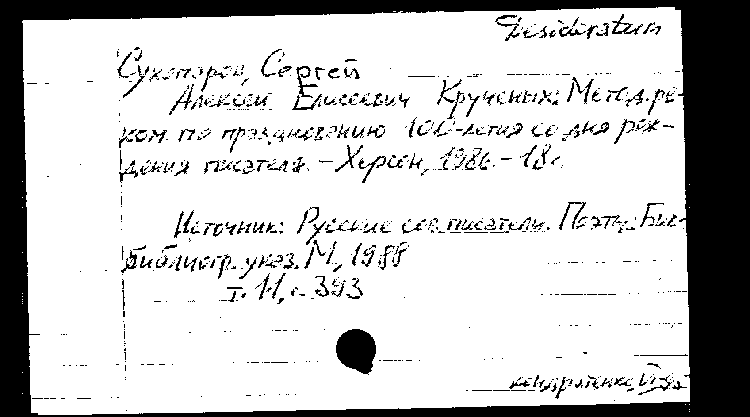 Desideratum
Сухопаров, Сергей
Алексей Елисеевич Крученых: Метод. ре-
ком. по празднованию 100-летия со дня рож-
дения писателя. – Херсон, 1986. – 18 с.
Источник: Русские сов. писатели. Поэты: Био-
библиогр. указ. М., 1988
т. 11, с. 393